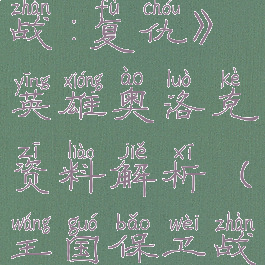 zhàn fù chóu
战：复仇》
yīng xióng ào luò kè
英雄奥洛克
zī liào jiě xī
资料解析（
wáng guó bǎo wèi zhàn
王国保卫战